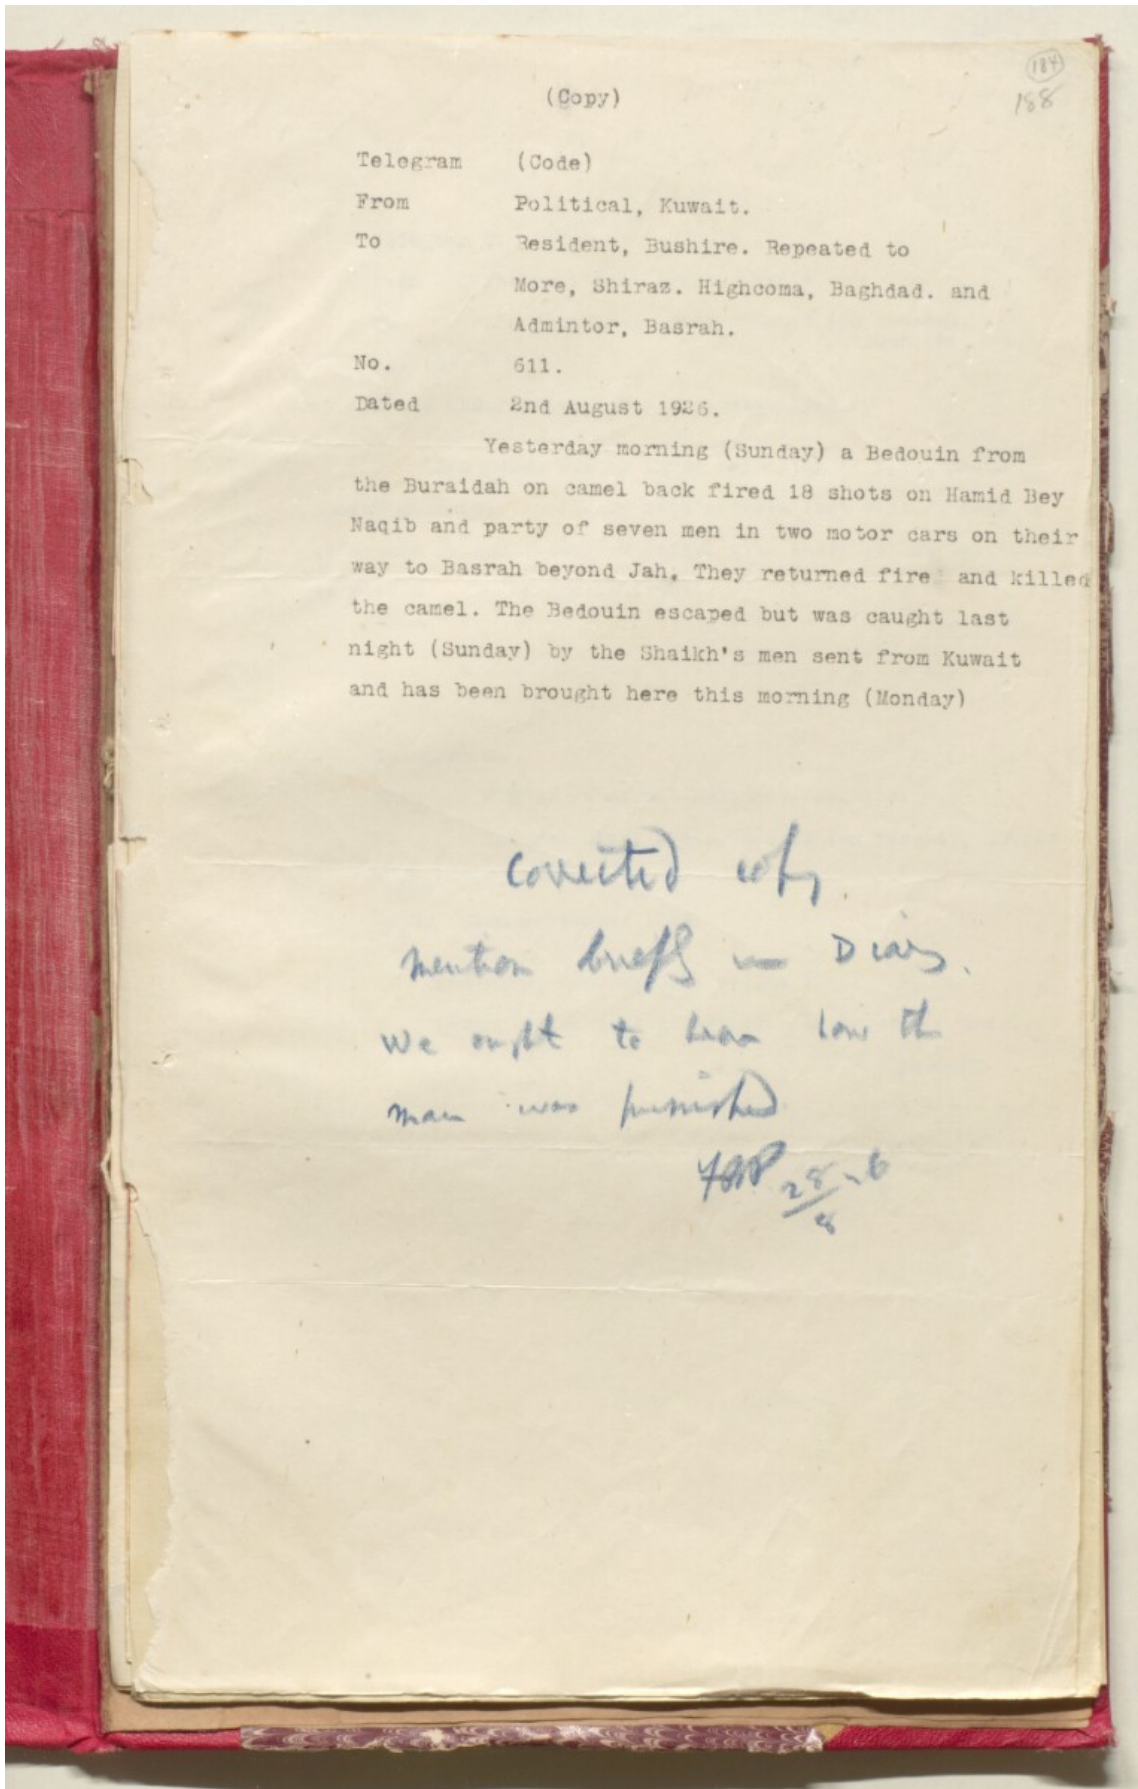 184
188
(Copy)
Telegram (Code)
From Political, Kuwait.
To Resident, Bushire. Repeated to
More, Shiraz. Highcoma, Baghdad. and
Admintor, Basrah.
No. 611.
Dated 2nd August 1926.
Yesterday morning (Sunday) a Bedouin from
the Buraidah on camel back fired 18 shots on Hamid Bey
Naqib and party of seven men in two motor cars on their
way to Basrah beyond Jah. They returned fire and killed
the camel. The Bedouin escaped but was caught last
night (Sunday) by the Shaikh's men sent from Kuwait
and has been brought here this morning (Monday)
Corrected copy.
Mention briefly in Diary.
We ought to hear how the
man was punished
28/8